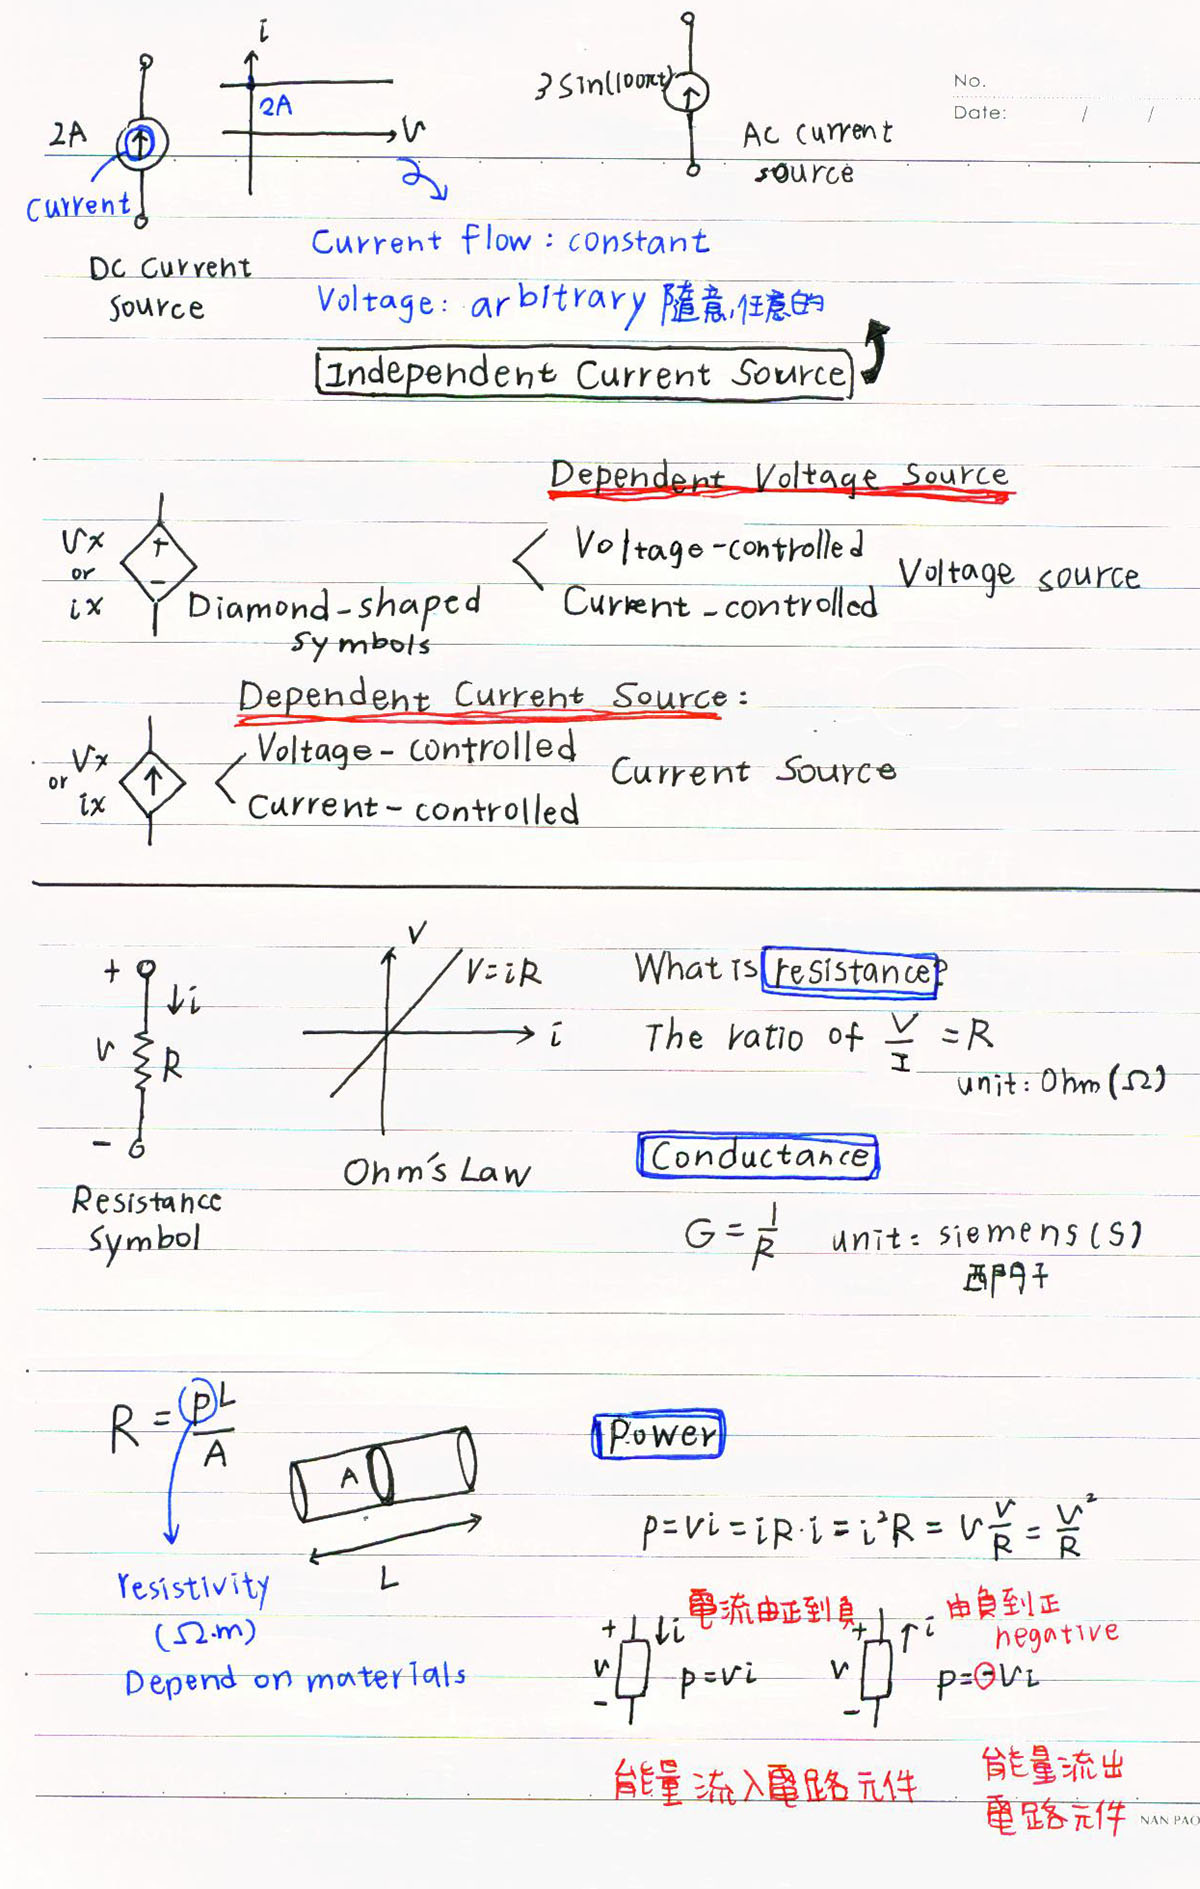 i
3 Sin(100πt)
No.
Date: / /
2A
2A
v
AC current
source
current
DC Current
Source
Current flow: constant
Voltage: arbitrary 隨意,任意的
Independent Current Source
Dependent Voltage Source
Vx
or
ix
+
−
Diamond-shaped
symbols
Voltage-controlled
Current-controlled
Voltage source
Dependent Current Source:
Vx
or
ix
Voltage-controlled
Current-controlled
Current Source
+
i
v
R
−
Resistance
Symbol
V
V=iR
i
Ohm's Law
What is resistance?
The ratio of V/I = R
unit: Ohm (Ω)
Conductance
G = 1/R unit: siemens (S)
西門子
R = ρL/A
A
L
resistivity
(Ω.m)
Depend on materials
Power
p=vi=iR·i=i²R=v v/R=v²/R
電流由正到負
+
i
v
p=vi
−
由負到正
negative
+
i
v
p=-vi
−
能量流入電路元件
能量流出
電路元件
NAN PAO